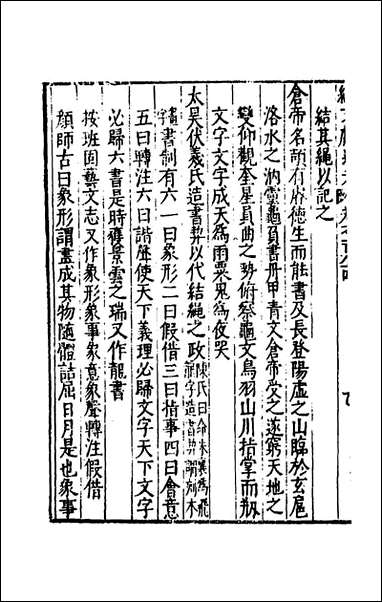 結其繩以記之
倉帝名頡有睿徳生而能書及長登陽虚之山臨於玄扈
洛水之汭靈龜負書丹甲青文倉帝受之遂窮天地之
變仰觀奎星員曲之勢俯察龜文鳥羽山川指掌而剏
文字文字成天為雨粟鬼為夜哭
太昊伏羲氏造書契以代結繩之政陳氏曰命朱襄為飛龍字造書契謂刻木
書制有六一曰象形二曰假借三曰指事四曰會意
五曰轉注六曰諧聲使天下義理必歸文字天下文字
必歸六書是時獲景雲之瑞又作龍書
按班固藝文志又作象形象事象意象聲轉注假借
顔師古曰象形謂畫成其物隨體詰屈日月是也象事